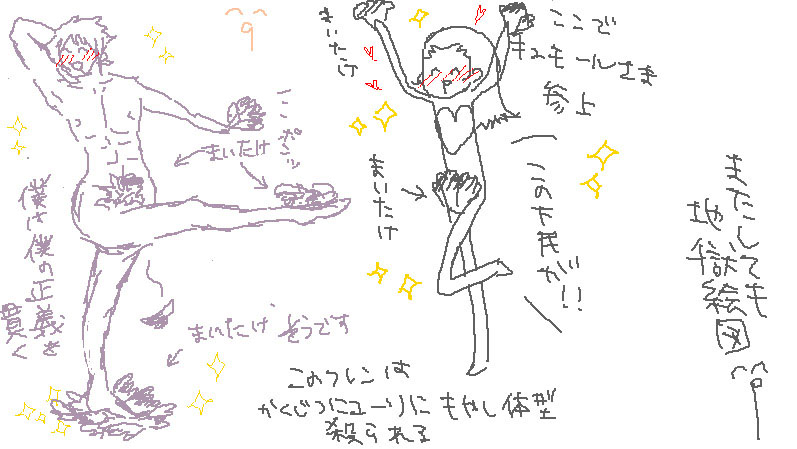 まいたけ
ここで
キュモールさま
参上
ここ ポンッ
まいたけ
まいたけ
この下民が!!
僕は僕の正義を
貫く
まいたけ どうです
またしても
地獄絵図
このフレンは
かくじつにユーリに
殺られる
もやし体型